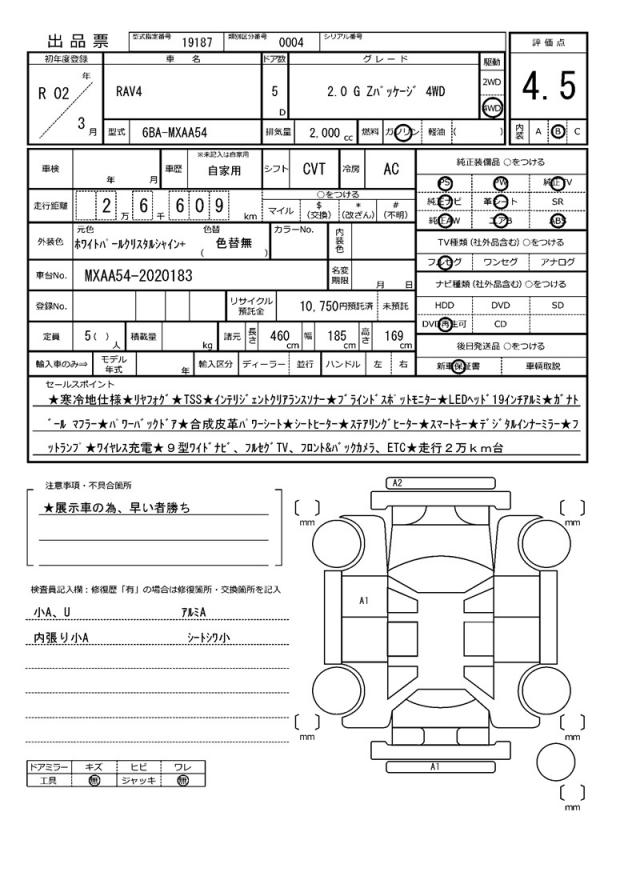 出品票
型式指定番号 19187 類別区分番号 0004 シリアル番号
評価点
初年度登録 車名 ドア数 グレード 駆動
R 02 年 3 月
RAV4
5 D
2.0 G Zパッケージ 4WD
2WD
4WD
4.5
型式 6BA-MXAA54 排気量 2,000 cc 燃料 ガソリン 軽油 ( )
内装 A B C
車検 年 月 車歴 ※未記入は自家用 自家用 シフト CVT 冷房 AC
純正装備品 ○をつける
PS PW 純正TV
走行距離 2 万 6 千 6 0 9 km
○をつける
マイル $(交換) *(改ざん) #(不明)
純正ナビ 革シート SR
純正AW エアB ABS
外装色 元色 ホワイトパールクリスタルシャイン+ 色替 ( 色替無 ) カラーNo. 内装色
TV種類 (社外品含む) ○をつける
フルセグ ワンセグ アナログ
車台No. MXAA54-2020183 名変期限 月 日
ナビ種類 (社外品含む) ○をつける
HDD DVD SD
登録No. リサイクル預託金 10,750円預託済 未預託
DVD再生可 CD
定員 5( ) 人 積載量 kg 諸元 長さ 460 cm 幅 185 cm 高さ 169 cm
後日発送品 ○をつける
輸入車のみ⇒ モデル年式 年 輸入区分 ディーラー 並行 ハンドル 左 右
新車保証書 車輌取説
セールスポイント
★寒冷地仕様★リヤフォグ★TSS★インテリジェントクリアランスソナー★ブラインドスポットモニター★LEDヘッド19インチアルミ★ガナト
ール マフラー★パワーバックドア★合成皮革パワーシート★シートヒーター★ステアリングヒーター★スマートキー★デジタルインナーミラー★フ
ットランプ★ワイヤレス充電★9型ワイドナビ、フルセグTV、フロント&バックカメラ、ETC★走行2万km台
注意事項・不具合箇所
★展示車の為、早い者勝ち
検査員記入欄：修復歴「有」の場合は修復箇所・交換箇所を記入
小A、U アルミA
内張り小A シートシワ小
ドアミラー キズ ヒビ ワレ
工具 無 ジャッキ 無
A2
A1
A1
mm
mm
mm
mm
mm